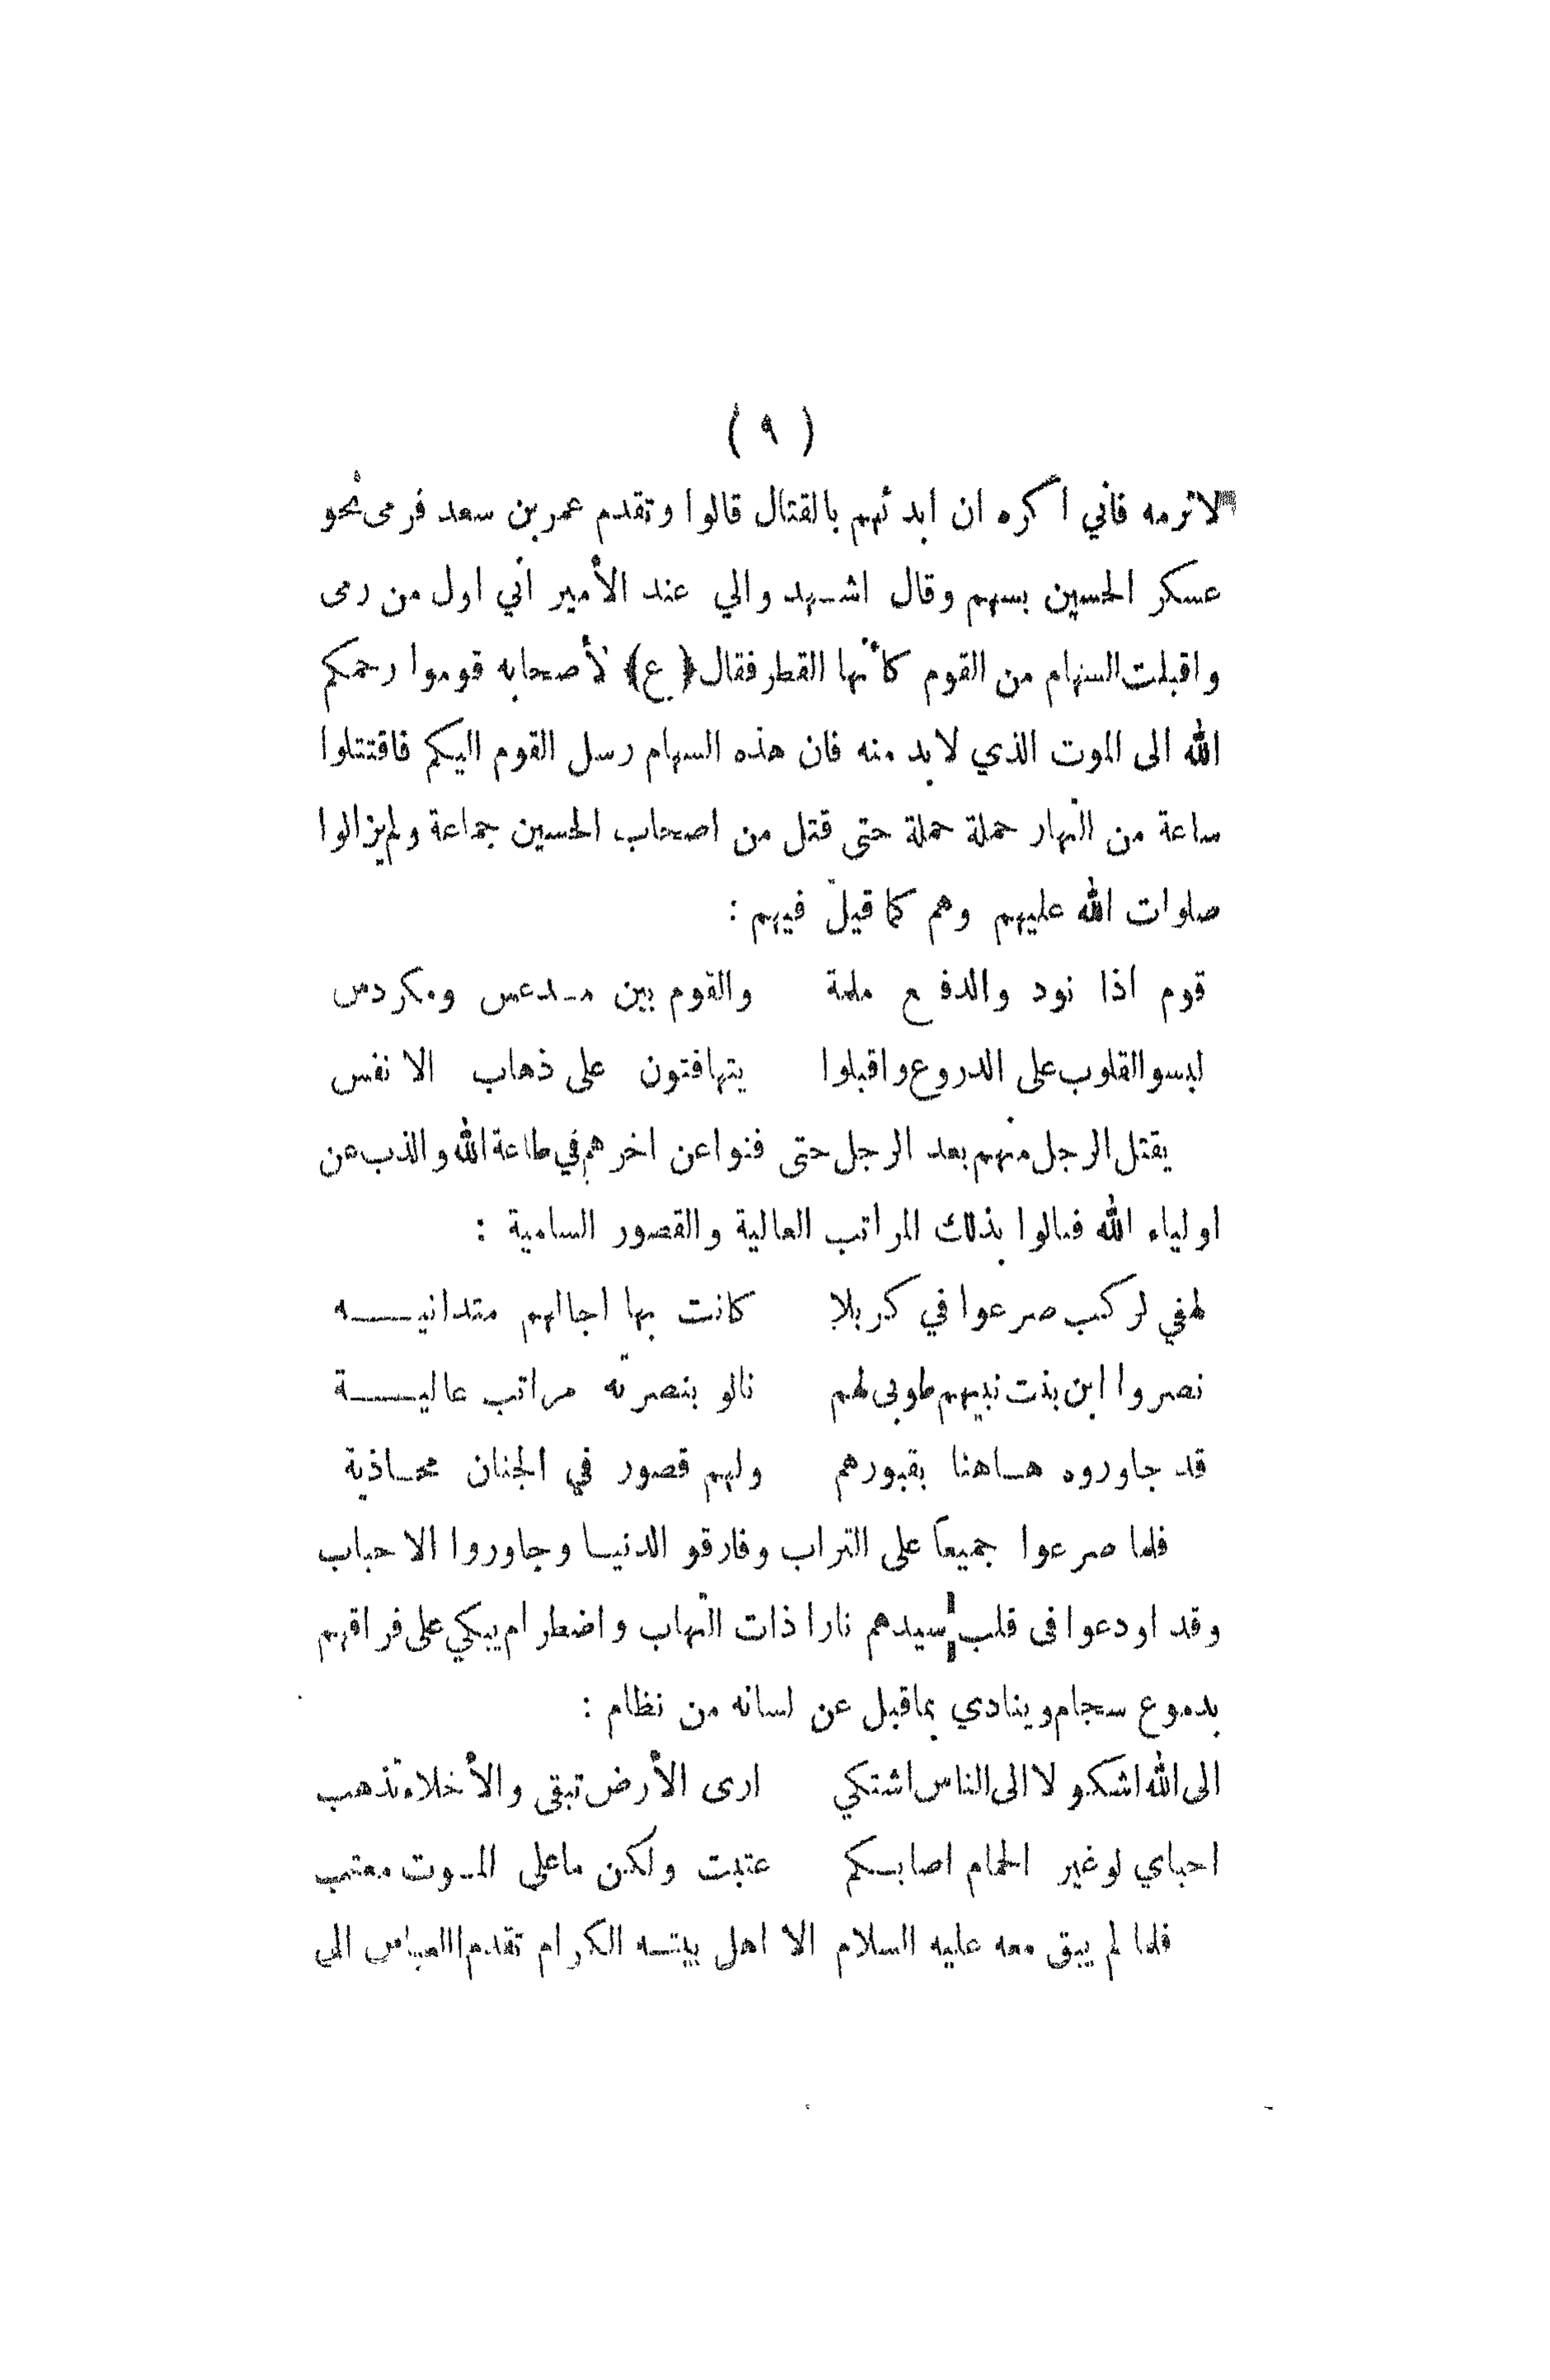 ( ٩ )
لا ترمه فاني اكره ان ابدئهم بالقتال قالوا وتقدم عمر بن سعد فرمى نحو
عسكر الحسين بسهم وقال اشهد والي عند الأمير أني اول من رمى
واقبلت السهام من القوم كأنها القطر فقال (ع) لأصحابه قوموا رحمكم
الله الى الموت الذي لابد منه فان هذه السهام رسل القوم اليكم فاقتتلوا
ساعة من النهار حملة حملة حتى قتل من اصحاب الحسين جماعة ولم يزالوا
صلوات الله عليهم وهم كما قيل فيهم :
قوم اذا نود والدفع ملمة والقوم بين مدعس ومكردس
لبسو القلوب على الدروع واقبلوا يتهافتون على ذهاب الانفس
يقتل الرجل منهم بعد الرجل حتى فنوا عن اخرهم في طاعة الله والذب عن
اولياء الله فنالوا بذلك المراتب العالية والقصور السامية :
لهفي لركب صرعوا في كربلا كانت بها اجالهم متدانيه
نصروا ابن بنت نبيهم طوبى لهم نالو بنصرته مراتب عالية
قد جاوروه هاهنا بقبورهم ولهم قصور في الجنان محاذية
فلما صرعوا جميعاً على التراب وفارقو الدنيا وجاوروا الاحباب
وقد اودعوا فى قلب سيدهم نارا ذات التهاب واضطرام يبكي على فراقهم
بدموع سجام وينادي بماقيل عن لسانه من نظام :
الى الله اشكو لا الى الناس اشتكي ارى الأرض تبقى والأخلاء تذهب
احباي لو غير الحمام اصابكم عتبت ولكن ماعلى الموت معتب
فلما لم يبق معه عليه السلام الا اهل بيته الكرام تقدم العباس الى